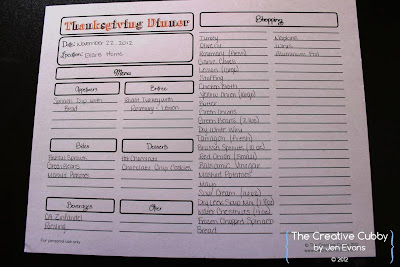 Thanksgiving Dinner
Date: November 22, 2012
Location: Evans Home
Menu
Appetizers
Entree
Spinach Dip with
Bread
Roast Turkey with
Rosemary + Lemon
Sides
Desserts
Brussel Sprouts
Green Beans
Mashed Potatoes
Hot Chocolate
Chocolate Crisp Cookies
Beverages
Other
CA Zinfandel
Riesling
For personal use only
Shopping
Turkey
Olive Oil
Rosemary (fresh)
Garlic Cloves
Lemon (large)
Stuffing
Chicken Broth
Yellow Onion (large)
Butter
Green Onions
Green Beans (2 lbs)
Dry White Wine
Tarragon (fresh)
Brussel Sprouts (10 oz)
Red Onion (small)
Balsamic Vinegar
Mashed Potatoes
Mayo
Sour Cream
Dry Leek Soup Mix
Water Chestnuts
Frozen Chopped Spinach
Bread
Napkins
Wings
Aluminum Foil
The Creative Cubby
by Jen Evans
© 2012